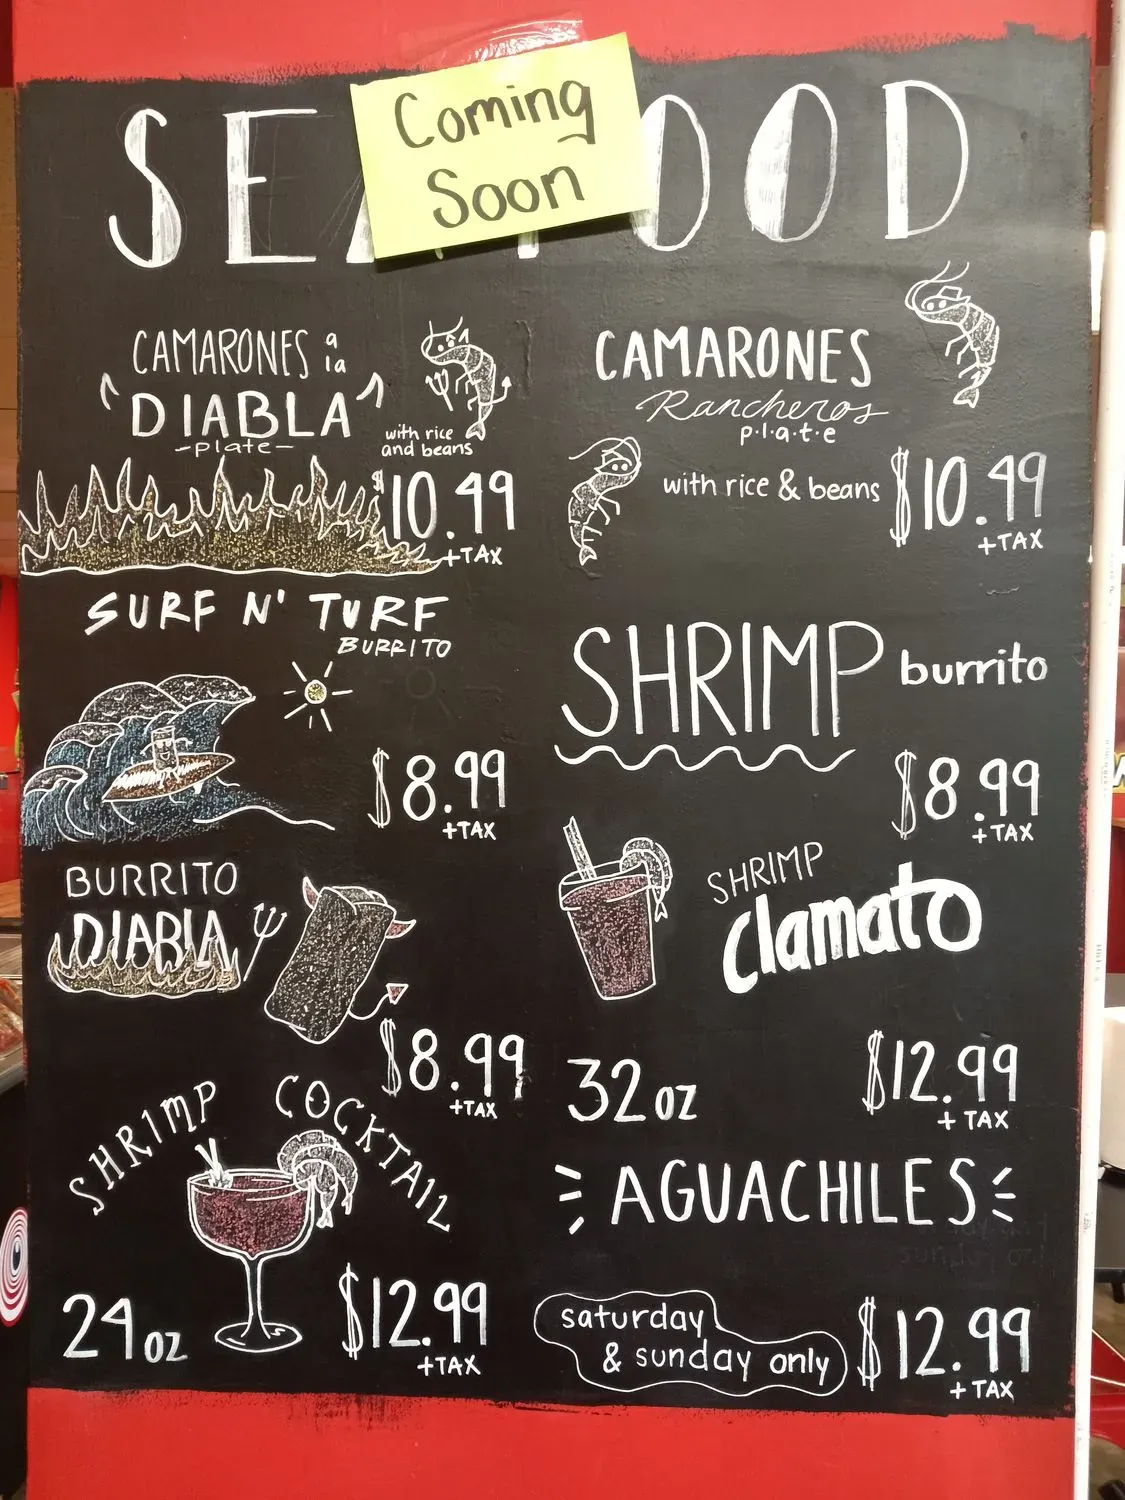 SEAFOOD
Coming
Soon
CAMARONES a la
DIABLA
-plate-
with rice
and beans
$10.49
+TAX
CAMARONES
Rancheros
p.l.a.t.e
with rice & beans
$10.49
+TAX
SURF N' TURF
BURRITO
$8.99
+TAX
SHRIMP burrito
$8.99
+TAX
BURRITO
DIABLA
$8.99
+TAX
SHRIMP
clamato
32oz
$12.99
+TAX
SHRIMP COCKTAIL
24oz
$12.99
+TAX
AGUACHILES
saturday
& sunday only
$12.99
+TAX